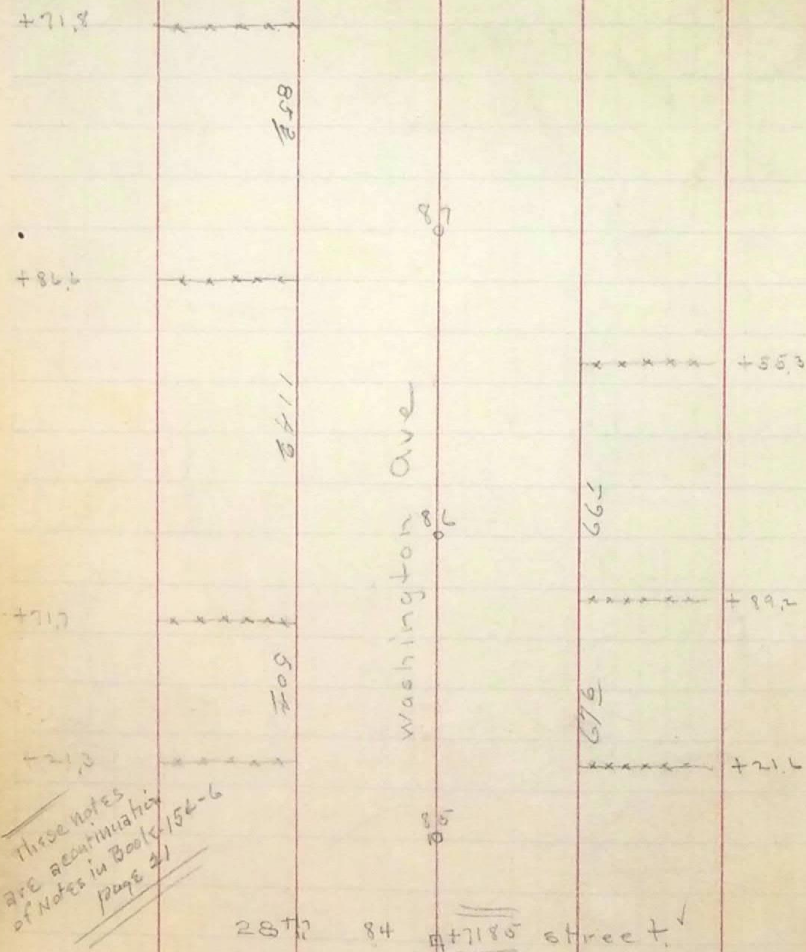 +71.8
85 2
87
+86.6
+55.3
114 9
Washington Ave
66 1
86
+89.2
+71.7
50 4
67 6
+21.3
+21.6
85
These notes
are a continuation
of Notes in Book 154-6
page 21
28th 84 +7185 street.